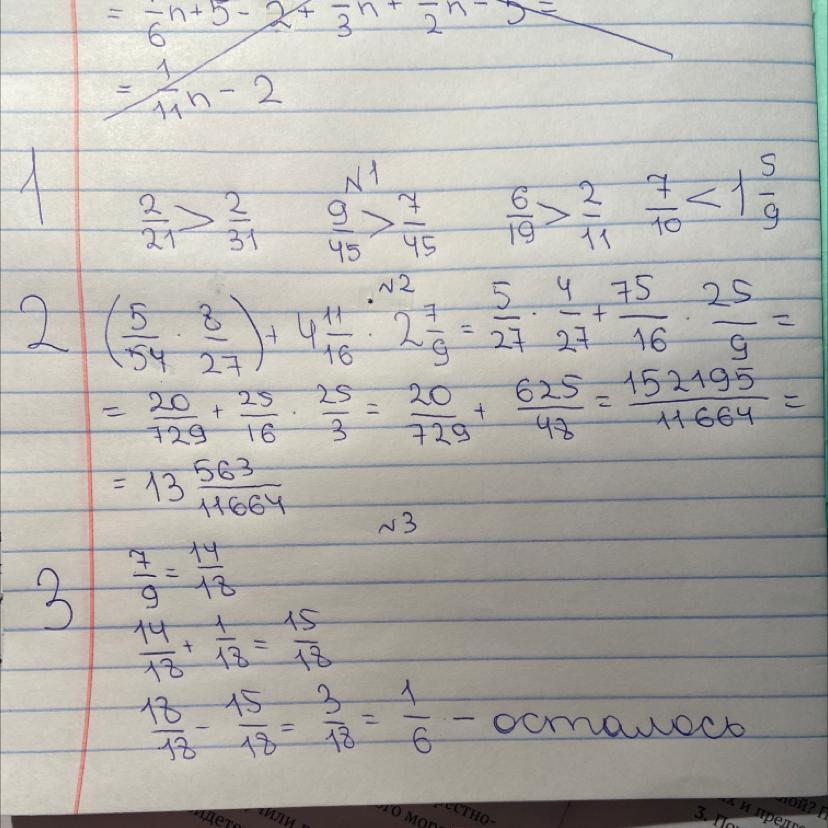 = 1/6 n + 5 - 2 + 1/3 n + 1/2 n - 5 =
= 1/11 n - 2
№1
1 2/21 > 2/31 9/45 > 7/45 6/19 > 2/11 7/10 < 1 5/9
№2
2 (5/54 · 8/27) + 4 11/16 · 2 7/9 = 5/27 · 4/27 + 75/16 · 25/9 =
= 20/729 + 25/16 · 25/3 = 20/729 + 625/48 = 152195/11664 =
= 13 563/11664
№3
3 7/9 = 14/18
14/18 + 1/18 = 15/18
18/18 - 15/18 = 3/18 = 1/6 - осталось